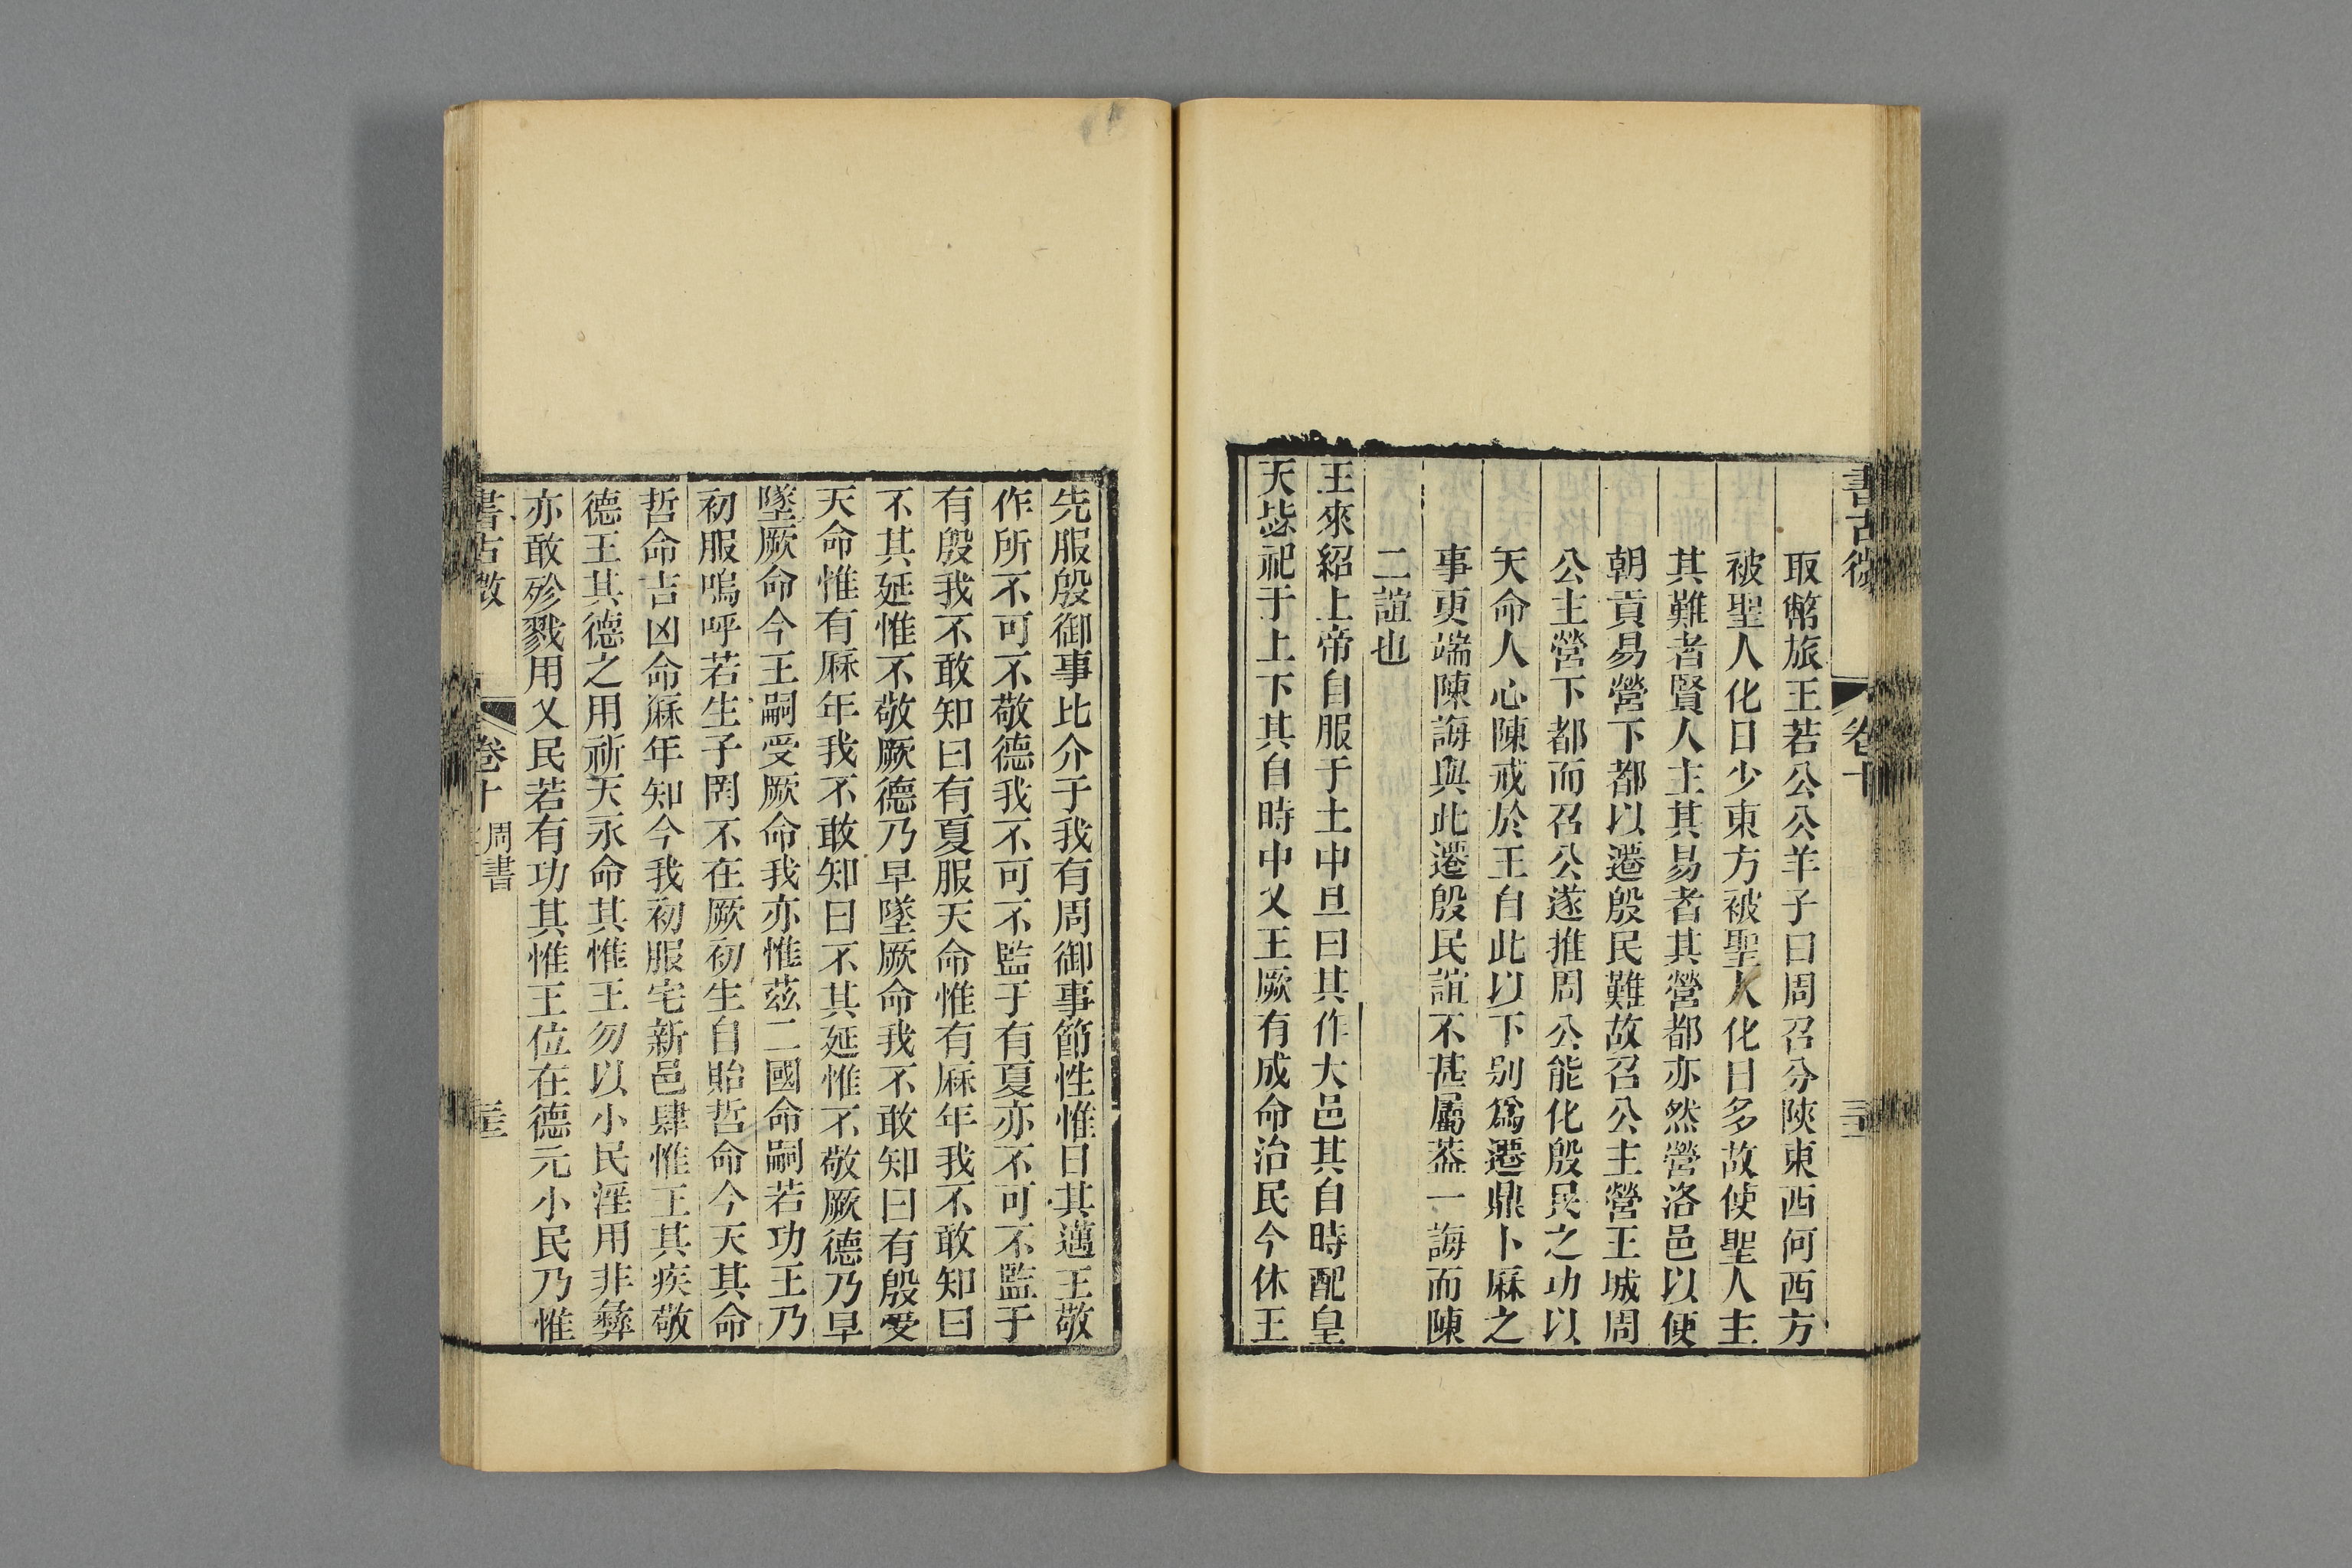 書古微
卷十
取幣旅王若公公羊子曰周召分陝東西何西方
被聖人化日少東方被聖人化日多故使聖人主
其難者賢人主其易者其營都亦然營洛邑以便
朝貢易營下都以遷殷民難故召公主營王城周
公主營下都而召公遂推周公能化殷民之功以
天命人心陳戒於王自此以下别爲遷鼎卜厤之
事更端陳誨與此遷殷民誼不甚屬葢一誨而陳
二誼也
王來紹上帝自服于土中旦曰其作大邑其自時配皇
天毖祀于上下其自時中乂王厥有成命治民今休王
先服殷御事比介于我有周御事節性惟日其邁王敬
作所不可不敬德我不可不監于有夏亦不可不監于
有殷我不敢知曰有夏服天命惟有厤年我不敢知曰
不其延惟不敬厥德乃早墜厥命我不敢知曰有殷受
天命惟有厤年我不敢知曰不其延惟不敬厥德乃早
墜厥命今王嗣受厥命我亦惟茲二國命嗣若功王乃
初服嗚呼若生子罔不在厥初生自貽哲命今天其命
哲命吉凶命厤年知今我初服宅新邑肆惟王其疾敬
德王其德之用祈天永命其惟王勿以小民淫用非彝
亦敢殄戮用乂民若有功其惟王位在德元小民乃惟
書古微
卷十 周書